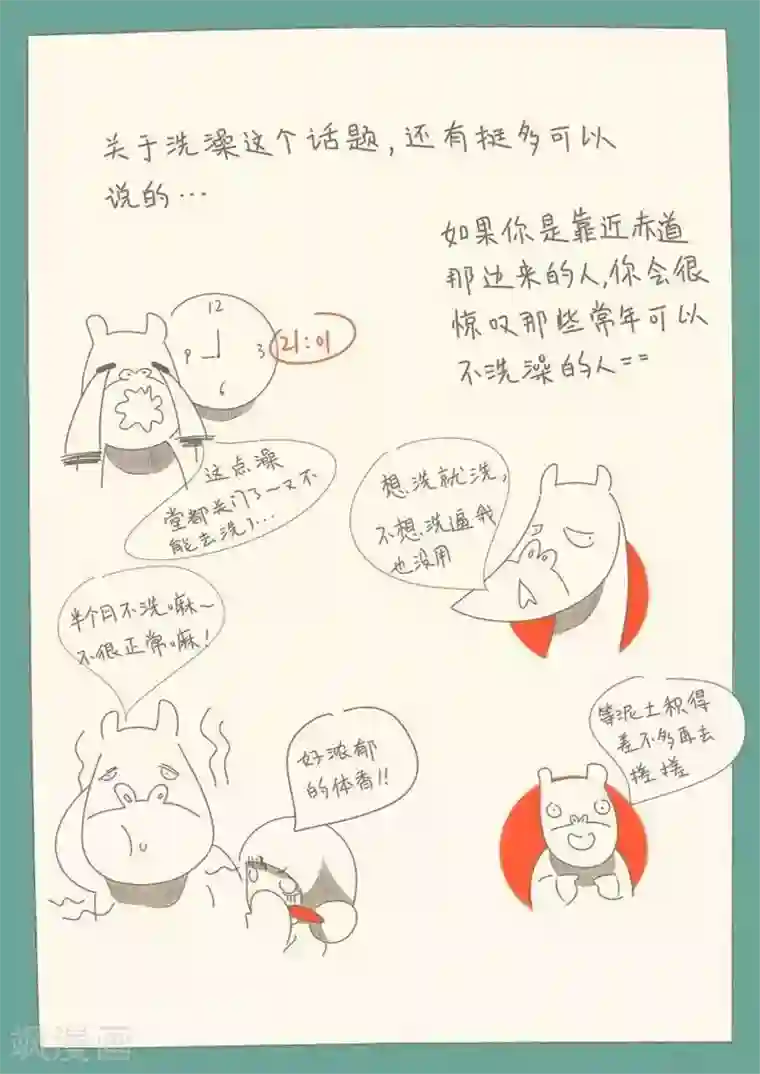 关于洗澡这个话题,还有挺多可以
说的…
如果你是靠近赤道
那边来的人,你会很
惊叹那些常年可以
不洗澡的人==
12
9
3
6
21:01
这点澡
堂都关门了~又不
能去洗了…
想洗就洗,
不想洗逼我
也没用
半个月不洗嘛~
不很正常嘛!
好浓郁
的体香!!
等泥土积得
差不多再去
搓搓
飒漫画